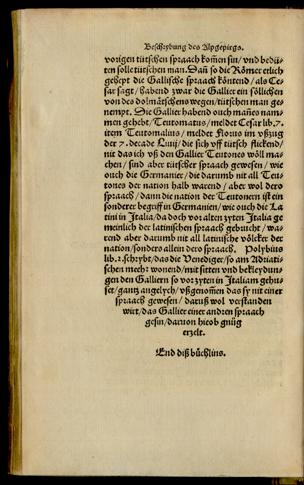 Beschrybung des Alpgepirgs.
vorigen tütschen spraach kom̄en sin/vnd bedü⸗
ten solle tütschen man. Dan̄ so die Römer etlich
gehept die Gallische spraach köntend/als Ce⸗
sar sagt/habend zwar die Gallier ein söllichen
von des dolmätschens wegen/tütschen man ge⸗
nempt. Die Gallier habend ouch man̄s nam⸗
men gehebt/Teutomatus/meldet Cesar lib.7.
item Teutomalius/meldet Florus im vßzug
der 7. decade Liuij/die sich vff tütsch flickend/
nit das ich vß den Gallier Teutones wöll ma⸗
chen/sind aber tütscher spraach gewesen/wie
ouch die Germanier/die darumb nit all Teu⸗
tones der nation halb warend/aber wol dero
spraach/dann die nation der Teutonern ist ein
sonderer begriff in Germanien/wie ouch die La
tini in Italia/da doch vor alten zyten Italia ge
meinlich der latinischen spraach gebrucht/wa⸗
rend aber darumb nit all latinische völcker der
nation/sonders allein dero spraach. Polybius
lib.2.schrybt/das die Venediger/so am Adriati
schen meer wonend/mit sitten vnd bekleydun⸗
gen den Galliern so vor zyten in Italiam gehu⸗
set/gantz angelych/vßgenom̄en das sy nit einer
spraach gewesen/daruß wol verstanden
wirt/das Gallier einer andren spraach
gesin/daruon hieob gnüg
erzelt.
End diß büchlins.